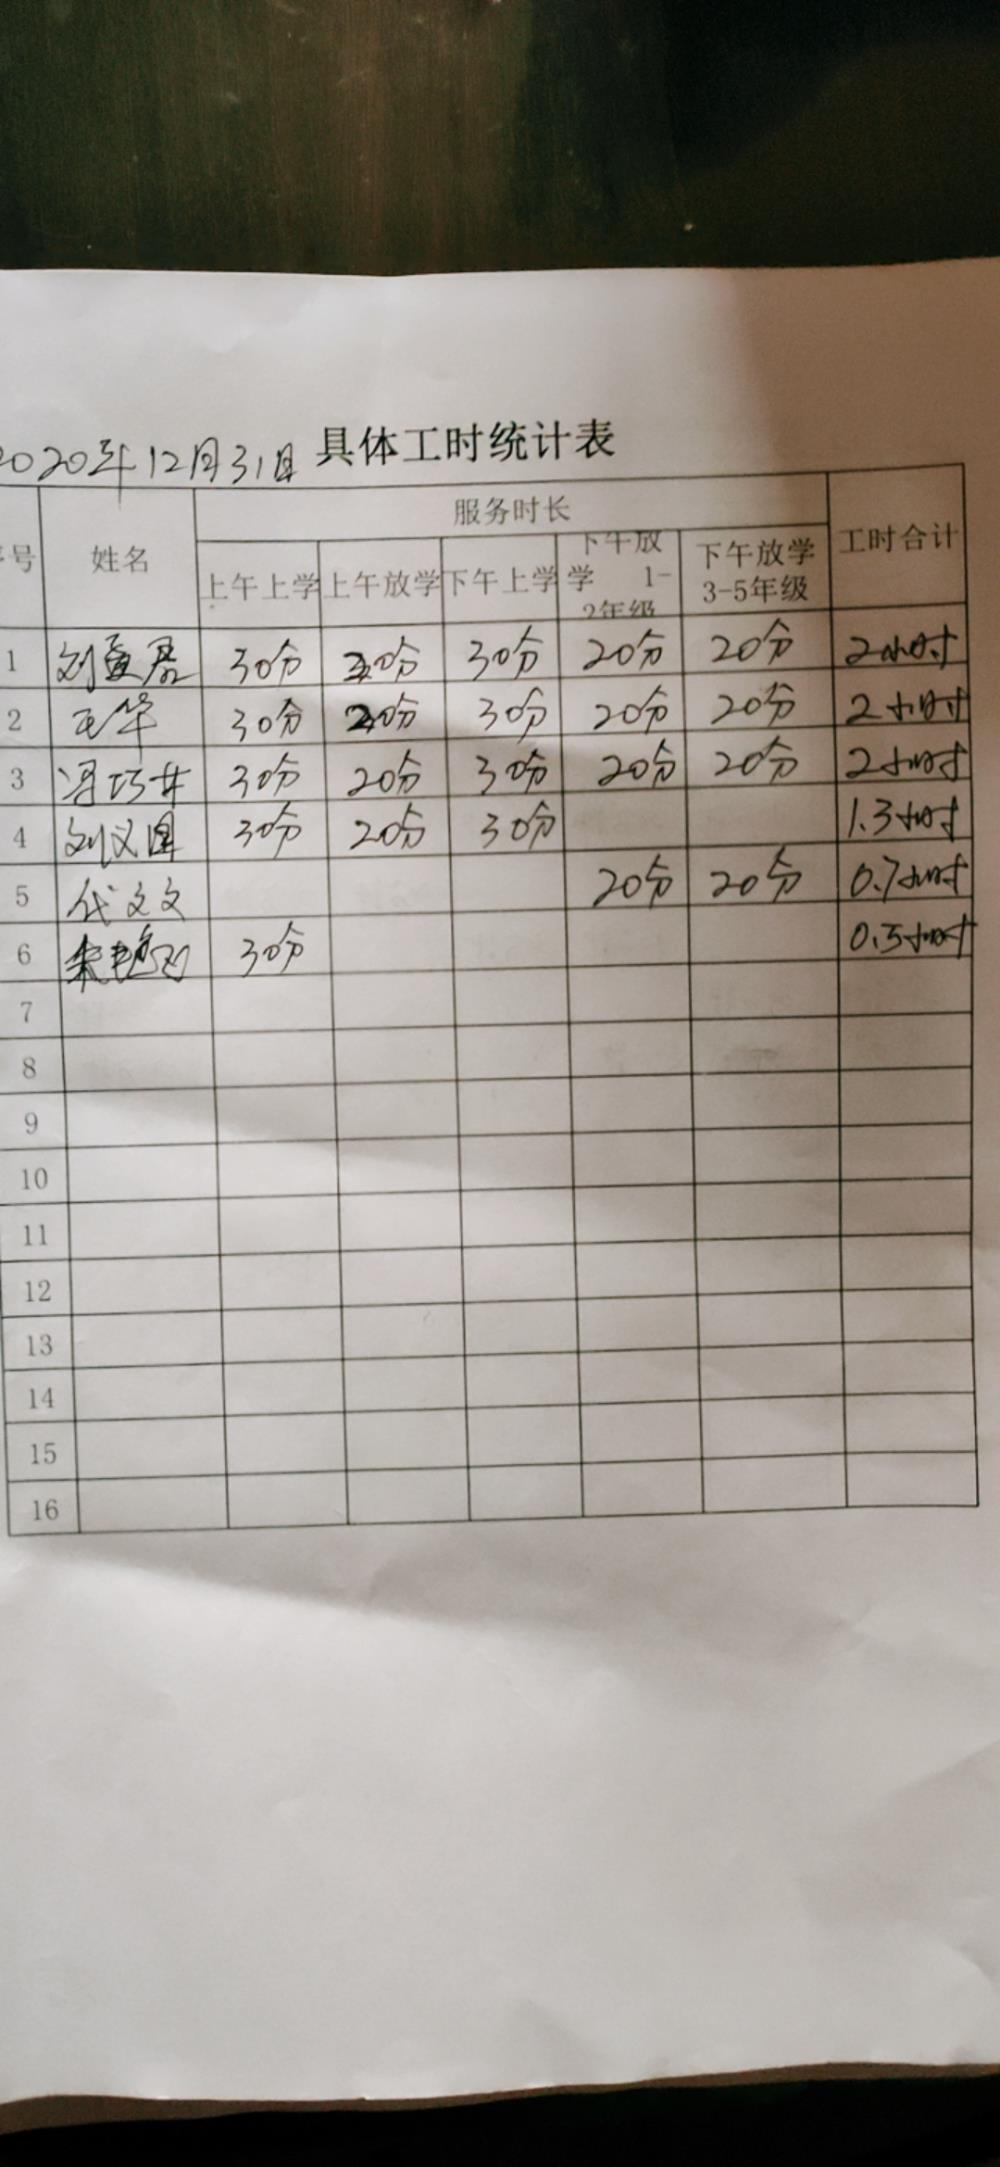 2020年12月31日 具体工时统计表
号 姓名 服务时长 工时合计
上午上学 上午放学 下午上学 下午放学 1-2年级 下午放学 3-5年级
1 刘 30分 20分 30分 20分 20分 2小时
2 王华 30分 20分 30分 20分 20分 2小时
3 冯巧女 30分 20分 30分 20分 20分 2小时
4 刘义国 30分 20分 30分 1.3小时
5 代文文 20分 20分 0.7小时
6 30分 0.5小时
7
8
9
10
11
12
13
14
15
16